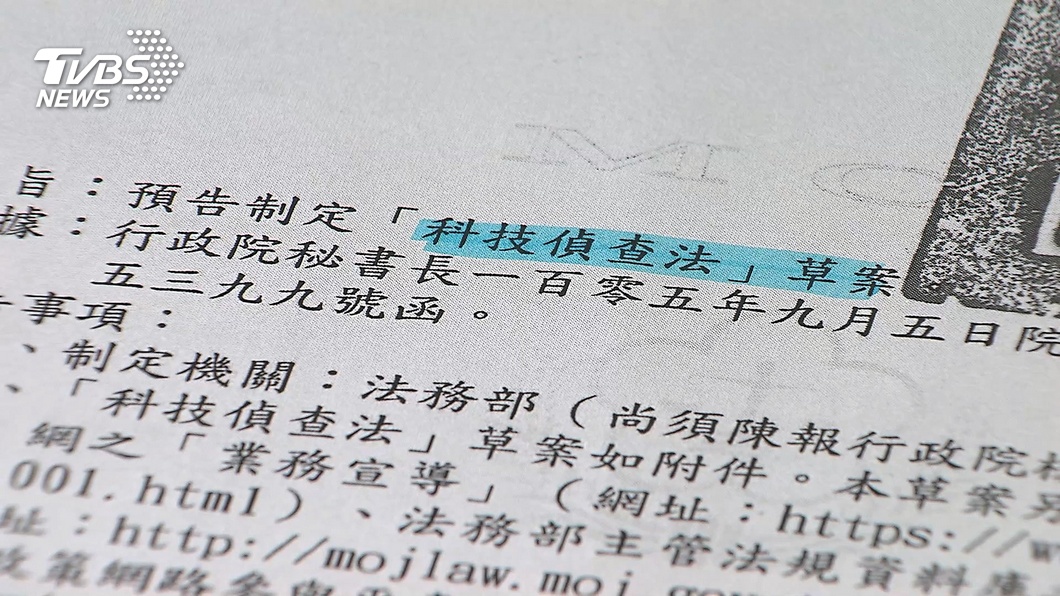 TVBS
NEWS
MO
旨：預告制定「科技偵查法」草案
據：行政院秘書長一百零五年九月五日院
五三九九號函。
事項：
、制定機關：法務部（尚須陳報行政院
、「科技偵查法」草案如附件。本草案
網之「業務宣導」（網址：https://w
001.html）、法務部主管法規資料庫
址：http://mojlaw.moj.gov
政策網路參與